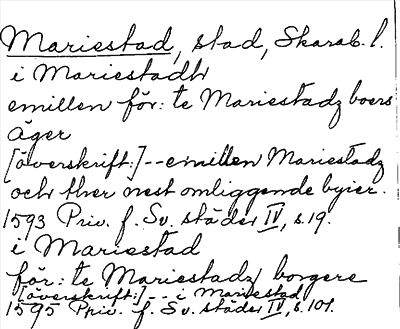 Mariestad, stad, Skarab. l.
i Mariestadh
emillen för: te Mariestadz boers
äger
[överskrift:]--emillen Mariestadz
och ther nest omliggende byier.
1593 Priv. f. Sv. städer IV, s. 19.
i Mariestad
för: te Mariestadz borgere
[överskrift:]--i Mariestad
1595 Priv. f. Sv. städer IV, s. 101.